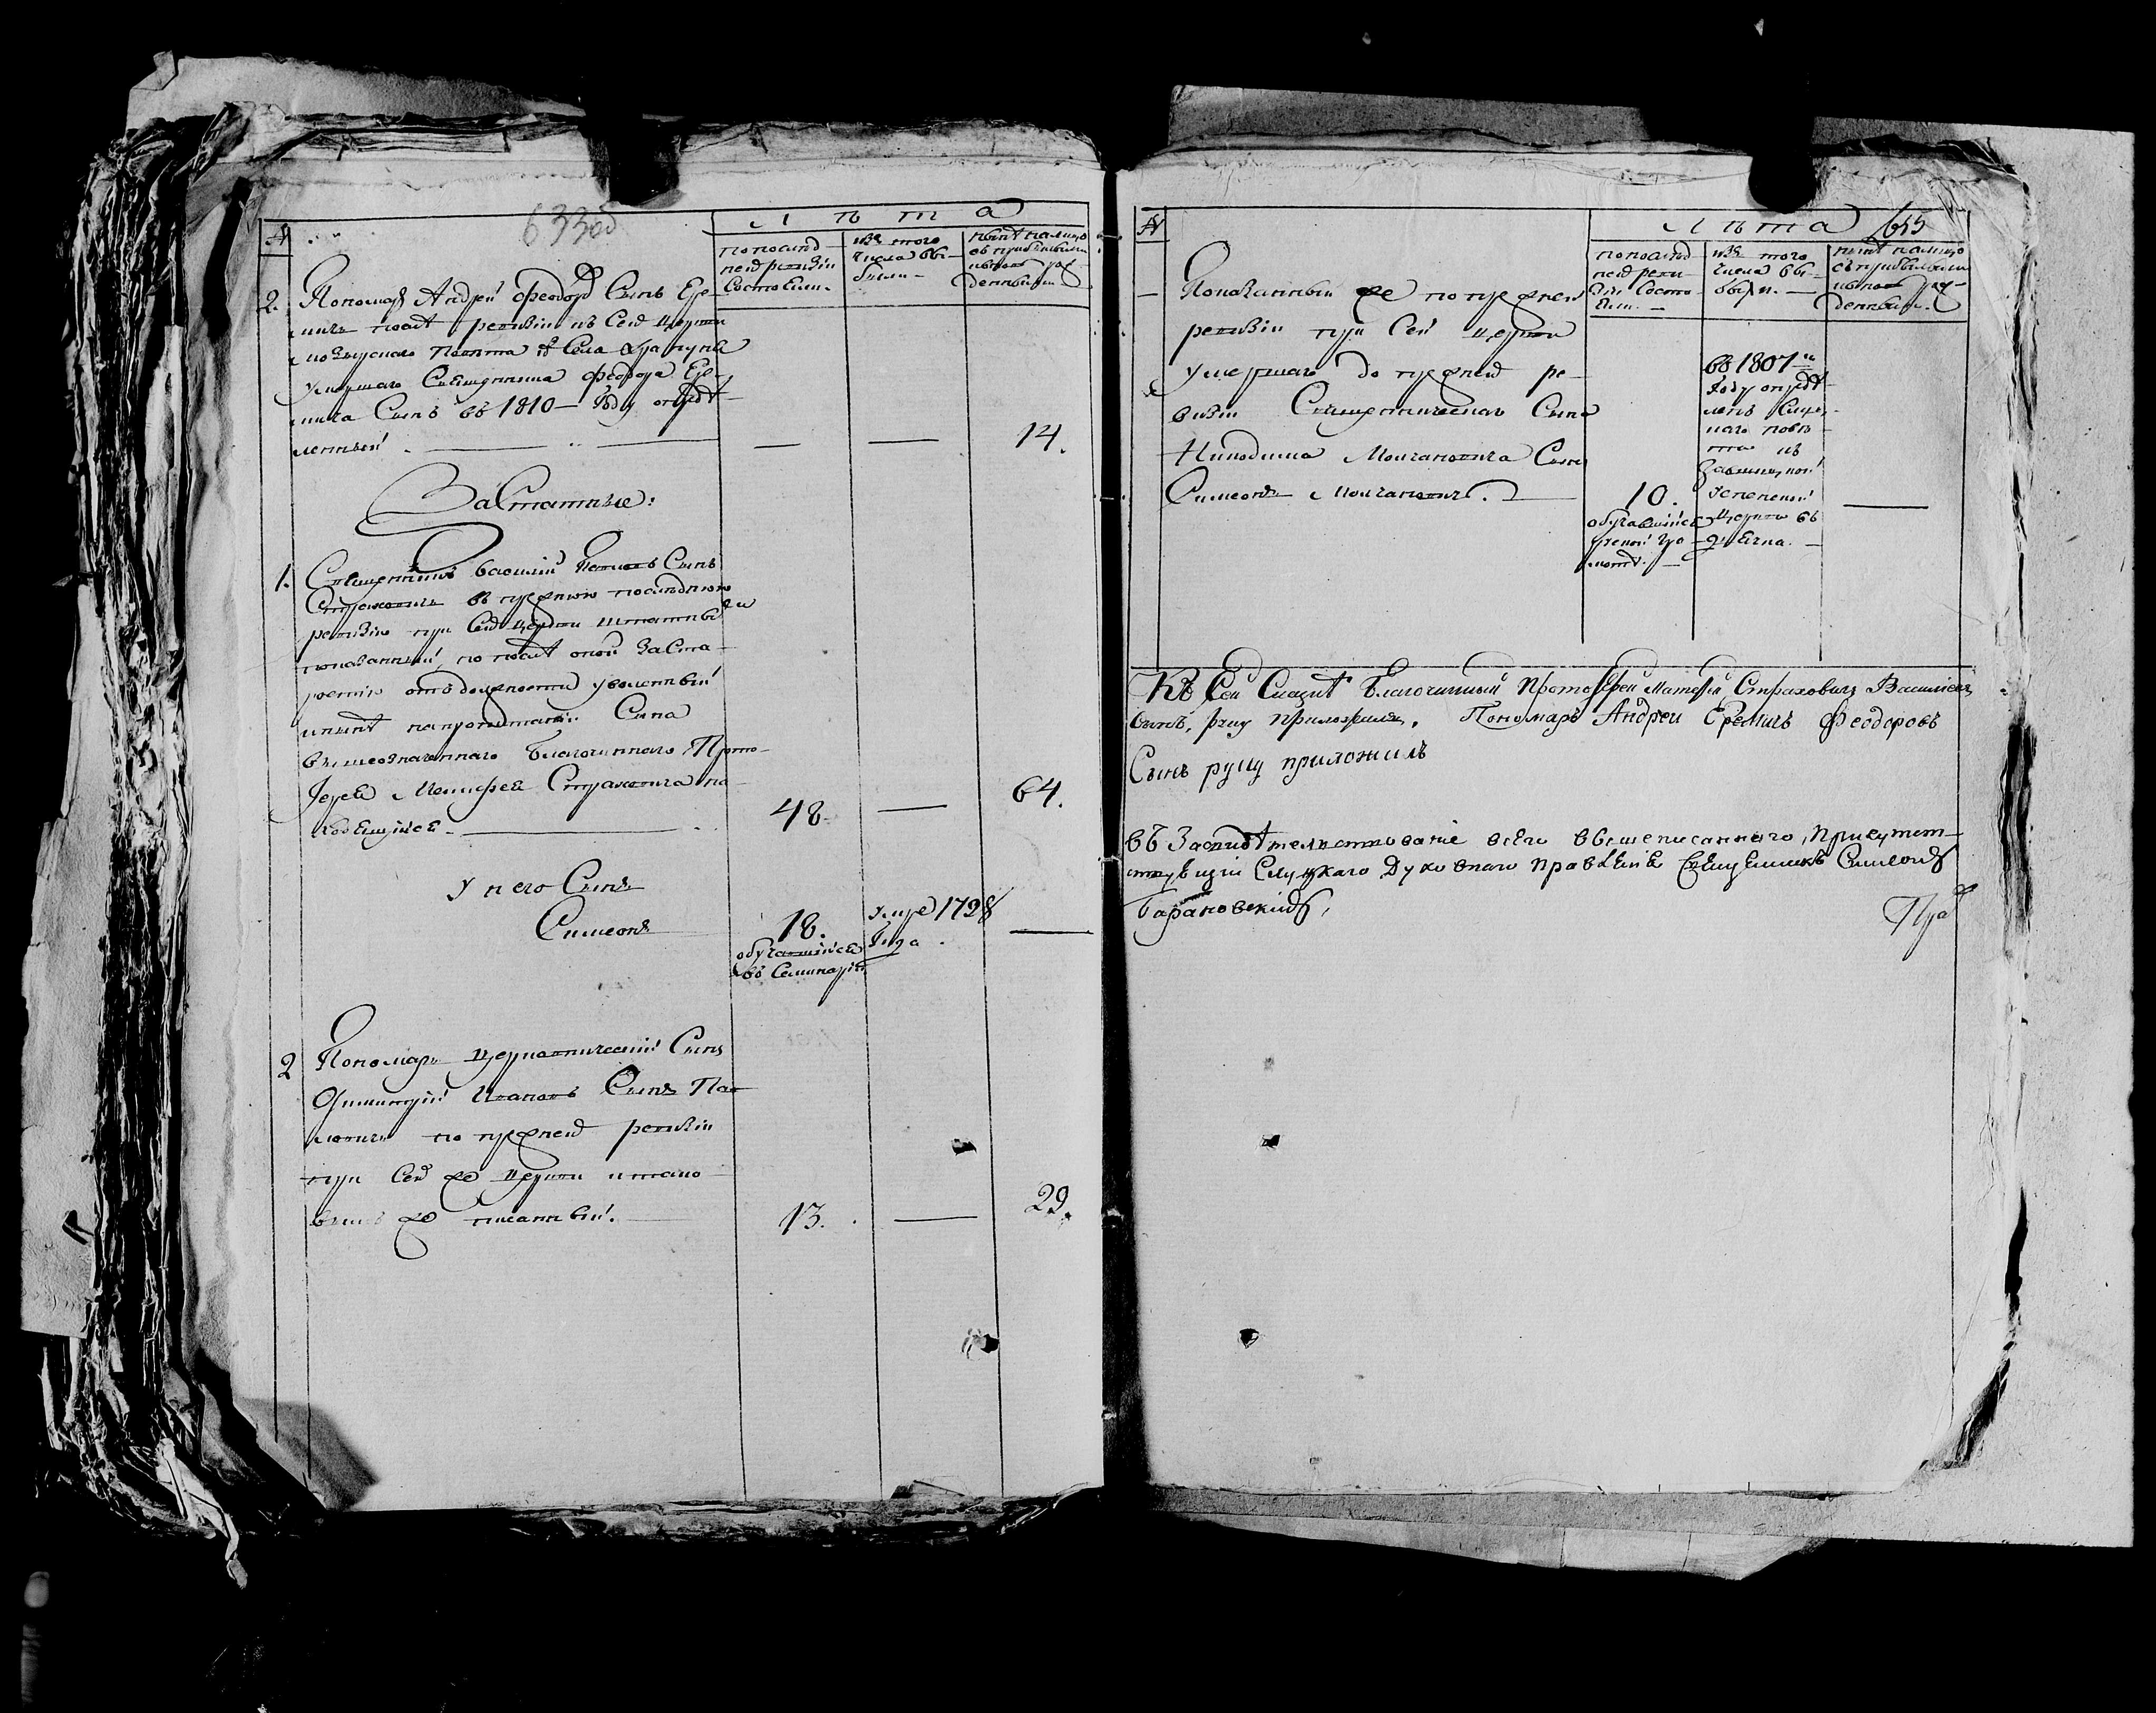 633об
№
Лѣта
по послѣд-
ней ревизіи
состояли.
изъ того
числа вы-
были
нынѣ на лицо
съ прибылыми
и вновь рож-
денными
2. Пономарь Андрей Феодоровъ Сынъ Ере-
мичъ послѣ ревизіи къ Сей Церкви
повѣта изъ Села
умершаго Священника Феодора Ере-
мича Сынъ въ 1810 Году опредѣ-
ленный — — 14.
Застатные:
1. Священникъ Василій Сынъ
Страховичъ въ прежнюю послѣднюю
ревизію при Сей Церкви штатнымъ
показанный, но послѣ оной За Ста-
ростію отъ должности уволенный
и нынѣ на пропитаніи Сына
вышеозначеннаго Благочиннаго Прото-
Іерея Страховича на-
ходящійся 48 — 64.
У него Сынъ
Симеонъ 18. умре 1798 —
обучавшійся Года
въ Семинаріи
2 Пономарь Церковническій Сынъ
Димитрій Ивановъ Сынъ Пав-
ловичъ по прежней ревизіи
при Сей же Церкви и тако-
вымъ же писанный. 13. — 29.
№
Лѣта 655
по послѣд-
ней реви-
зіи состо-
яли.
изъ того
числа вы-
были.
нынѣ на лицо
съ прибылыми
и вновь рож-
денными.
Показанный же по прежней
ревизіи при Сей Церкви
умершаго до прежней ре-
визіи Священническаго Сына
Никодима Молчановича Сынъ
Симеонъ Молчановичъ. 10.
обучавшійся
грамотѣ.
въ 1807м
Году опредѣ-
ленъ Слуц-
каго повѣ-
та къ
Успенской
Церкви въ
дьячка. —
Къ Сей Сказкѣ Благочинный Протоіерей Матфей Страховичъ Василіевъ
сынъ, руку приложилъ. Пономарь Андрей Еремичъ Феодоровъ
Сынъ руку приложилъ
въ Засвидѣтельствованіе всего вышеписаннаго, Присутст-
вующій Слуцкаго Духовнаго Правленія Священникъ Симеонъ
Барановскій,